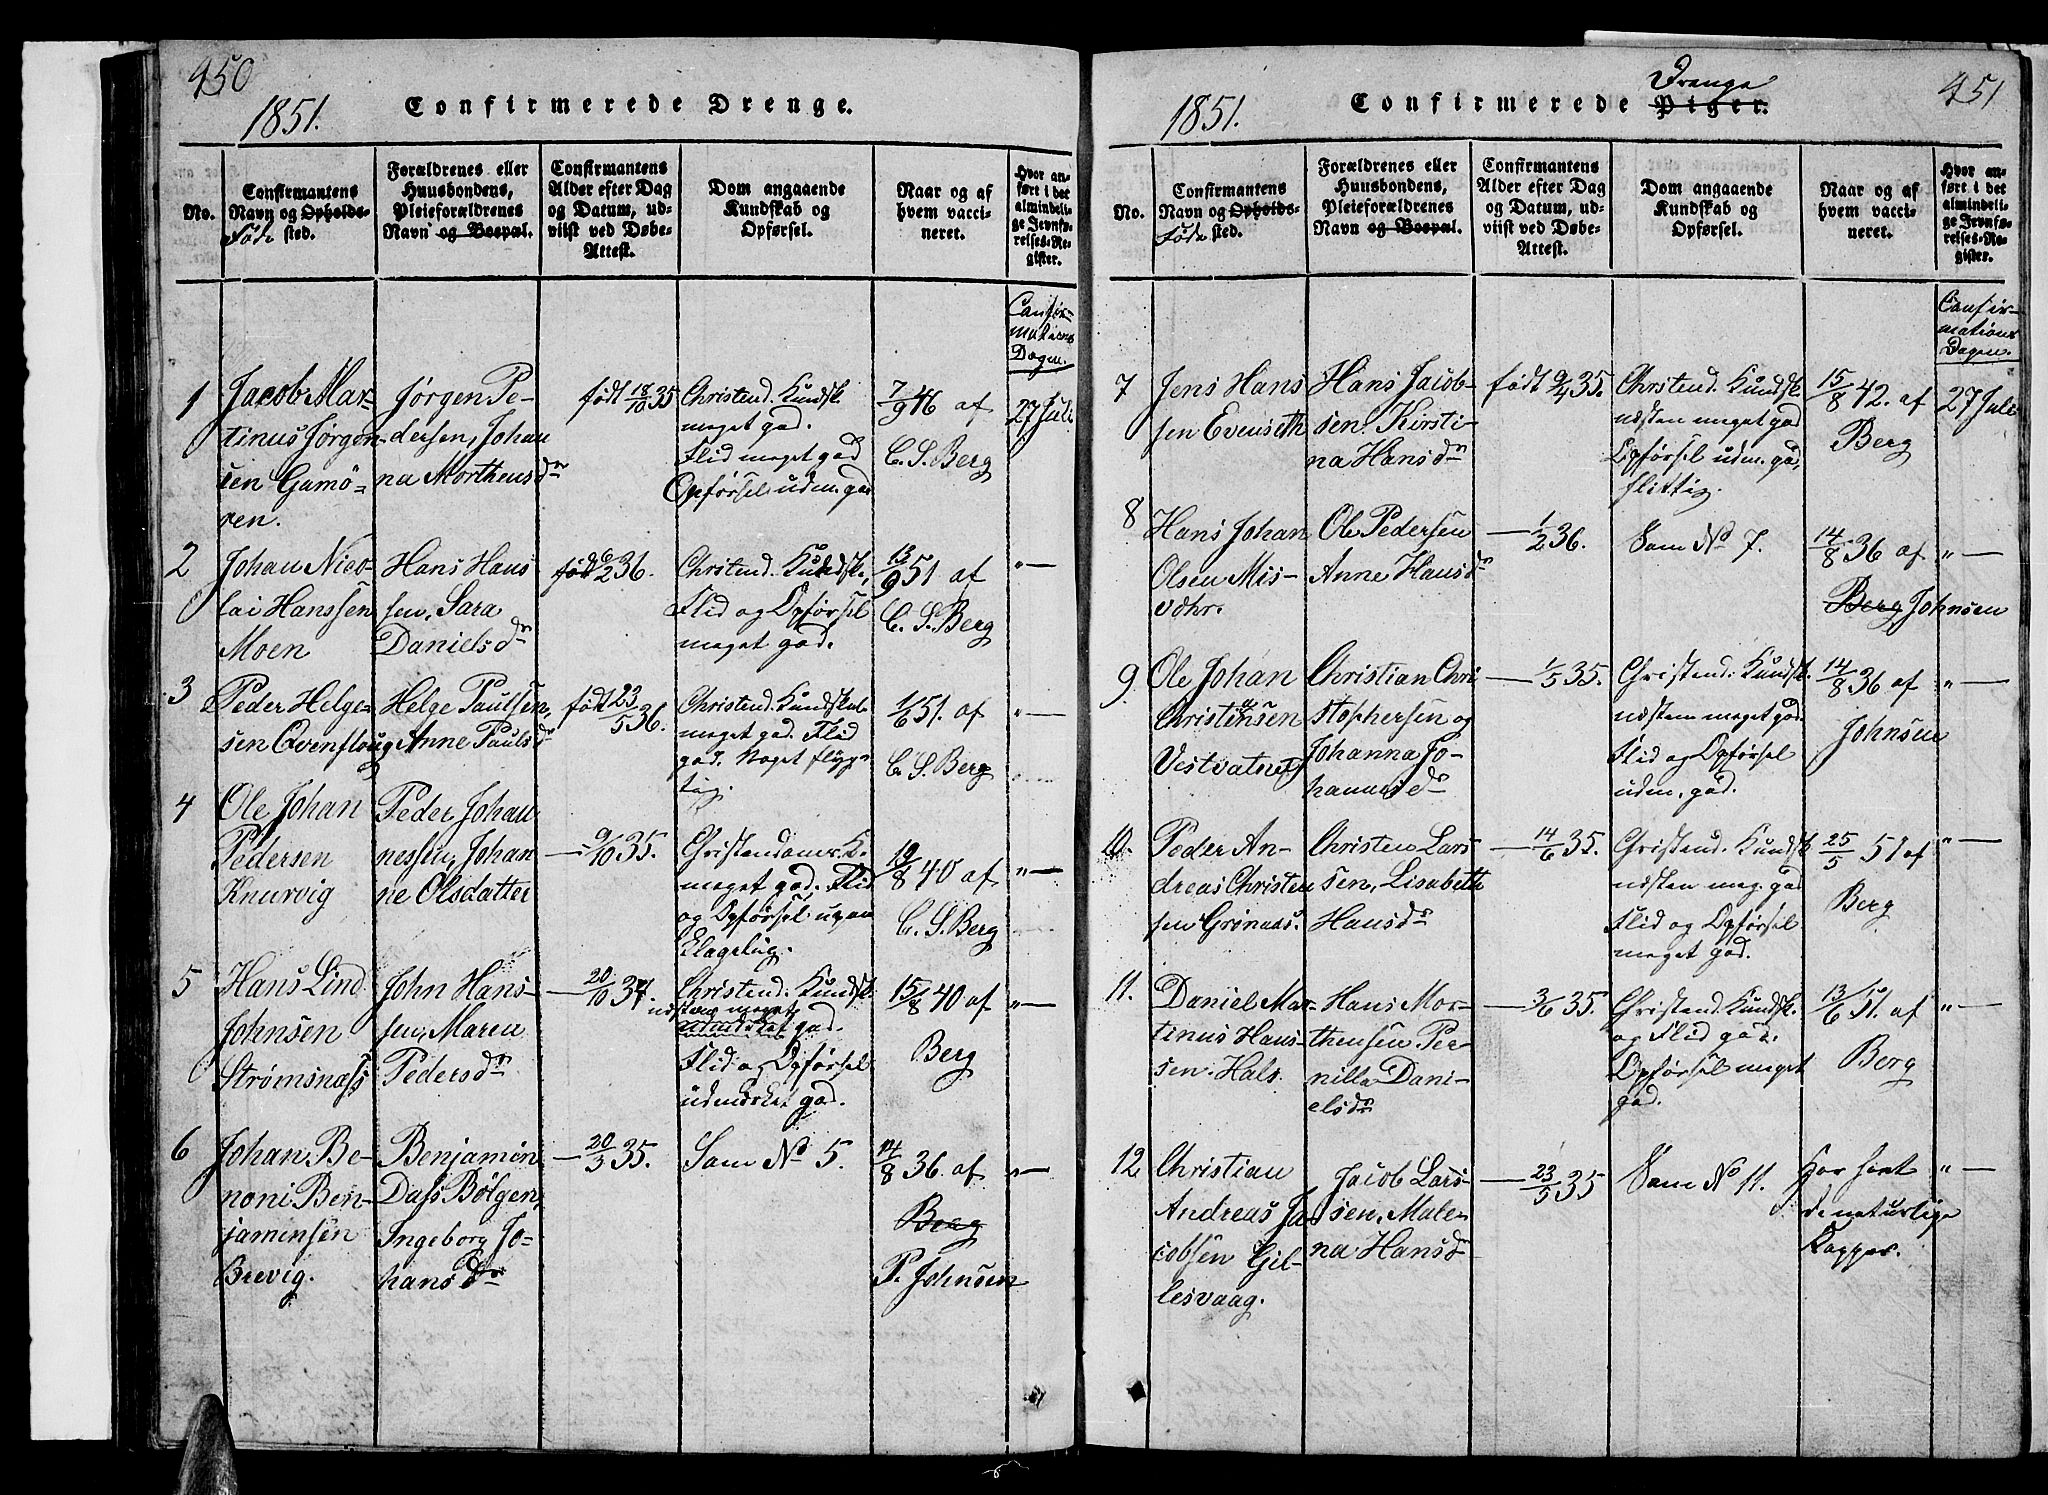 450
1851.
Confirmerede Drenge.
No.
Confirmantens
Navn og Opholds-
Føde sted.
Forældrenes eller
Huusbondens,
Pleieforældrenes
Navn og Bopæl.
Confirmantens
Alder efter Dag
og Datum, ud-
viist ved Døbe-
Attest.
Dom angaaende
Kundskab og
Opførsel.
Naar og af
hvem vacci-
neret.
Hvor an-
ført i det
almindeli-
ge Jevnfø-
relses-Re-
gister.
Confir-
mations
Dagen.
1
Jacob Mar-
tinus Jørgen-
sen Gamø-
ren.
Jørgen Pe-
dersen, Johan
na Morthensdr
født 18/10 35
Christend. Kundsk.
meget god.
Flid meget god
Opførsel udm. god
7/9 46 af
C. S. Berg
27 Juli
2
Johan Nico-
lai Hanssen
Moen
Hans Hans
sen, Sara
Danielsdr
født 6/2 36.
Christend. Kundsk.,
Flid og Opførsel
meget god.
13/9 51 af
C. S. Berg
" —
3
Peder Helge-
sen Qvenfloug
Helge Paulsen,
Anne Paulsdr
født 23/5 36.
Christend. Kundskab
meget god. Flid
god. Noget flyg-
tig.
1/6 51. af
C. S. Berg
" —
4
Ole Johan
Pedersen
Knurvig
Peder Johan
nessen, Johan
ne Olsdatter
— 9/10 35.
Christendoms K.
meget god. Flid
og Opførsel ugen
Elagelig.
19/8 40 af
C. S. Berg
" —
5
Hans Lind
Johnsen
Strømsnæss
John Hans-
sen, Maren
Pedersdr
— 20/10 34.
Christend. Kundsk.
næsten meget
udmærket god.
Flid og Opførsel
udmærket god.
15/8 40 af
Berg
" —
6
Johan Be-
noni Ben-
jaminsen
Brevig.
Benjamin
Dass Bølgen,
Ingeborg Jo-
hansdr
— 20/3 35.
Som No 5.
14/8 36. af
Berg
P. Johnsen
" —
451
1851.
Confirmerede Piger.
Drenge
No.
Confirmantens
Navn og Opholds-
Føde sted.
Forældrenes eller
Huusbondens,
Pleieforældrenes
Navn og Bopæl.
Confirmantens
Alder efter Dag
og Datum, ud-
viist ved Døbe-
Attest.
Dom angaaende
Kundskab og
Opførsel.
Naar og af
hvem vacci-
neret.
Hvor an-
ført i det
almindeli-
ge Jevnfø-
relses-Re-
gister.
Confir-
mations
Dagen.
7
Jens Hans
sen Evenseth
Hans Jacob-
sen. Kirsti-
na Hansdr
født 9/4 35.
Christend. Kundsk.
næsten meget god
Opførsel udm. god,
flittig.
15/8 42. af
Berg
27 Juli
8
Hans Johan
Olsen Mis-
vær.
Ole Pedersen
Anne Hansdr
— 1/2 36.
Som No 7.
14/8 36 af
Berg Johnsen
" —
9.
Ole Johan
Christensen
Vestvatnet
Christian Chri
stophersen og
Johanna Jo-
hannisdr
— 1/5 35.
Christend. Kundsk.
næsten meget god.
Flid og Opførsel
udm. god.
14/8 36 af
Johnsen
" —
10.
Peder An-
dreas Christen
sen Grønaas.
Christen Lars
sen, Lisabeth
Hansdr
— 14/6 35.
Christend. Kundsk
næsten meg. god
Flid og Opførsel
meget god.
25/5 51 af
Berg
" —
11.
Daniel Mar-
tinus Hans-
sen. Hals.
Hans Mor-
thensen Per
nilla Dani-
elsdr
— 3/6 35.
Christend. Kundsk.
og Flid god.
Opførsel meget
god.
13/6 51. af
Berg
" —
12
Christian
Andreas Ja
cobsen Gil-
lesvaag.
Jacob Lars-
sen, Male-
na Hansdr
— 23/5 35
Som No 11.
Har havt
de naturlige
Kopper.
" —